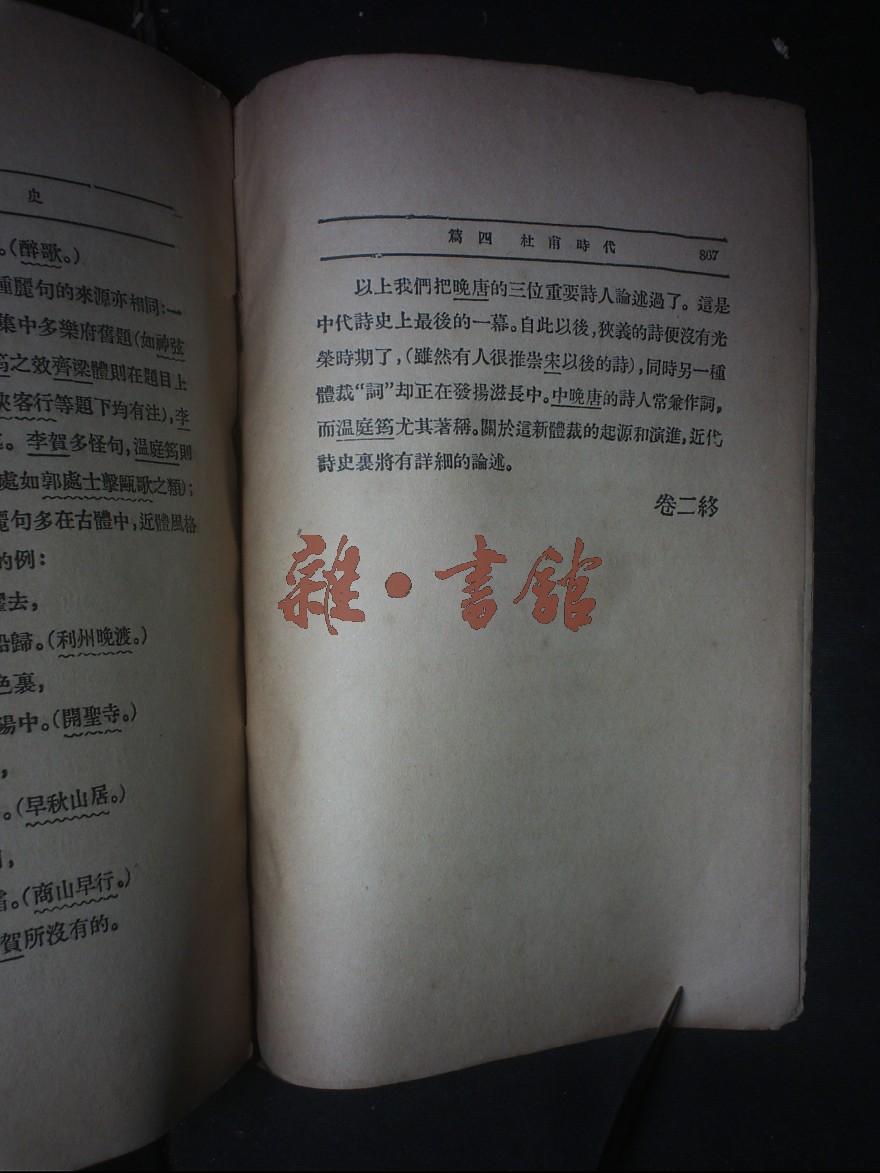 史
。(醉歌。)
種麗句的來源亦相同:一
集中多樂府舊題(如神弦
筠之效齊梁體則在題目上
俠客行等題下均有注),李
。李賀多怪句,温庭筠則
處如郭處士擊甌歌之類);
麗句多在古體中,近體風格
的例:
去,
歸。(利州晚渡。)
色裏,
陽中。(開聖寺。)
,
。(早秋山居。)
,
。(商山早行。)
賀所沒有的。
篇四 杜甫時代 867
以上我們把晚唐的三位重要詩人論述過了。這是
中代詩史上最後的一幕。自此以後,狹義的詩便沒有光
榮時期了,(雖然有人很推崇宋以後的詩),同時另一種
體裁“詞”却正在發揚滋長中。中晚唐的詩人常兼作詞,
而温庭筠尤其著稱。關於這新體裁的起源和演進,近代
詩史裏將有詳細的論述。
卷二終
雜·書館